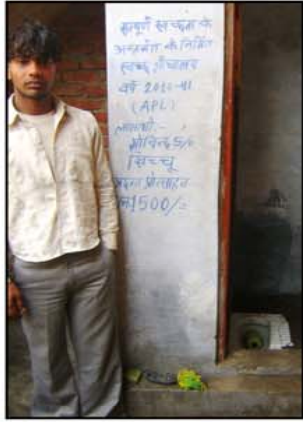 सम्पूर्ण स्वच्छता के
अन्तर्गत के निर्मित
स्वच्छ शौचालय
वर्ष 2010-11
(APL)
लाभार्थी:-
गोविन्द S/o
खिच्चू
प्रोत्साहन
1500/=